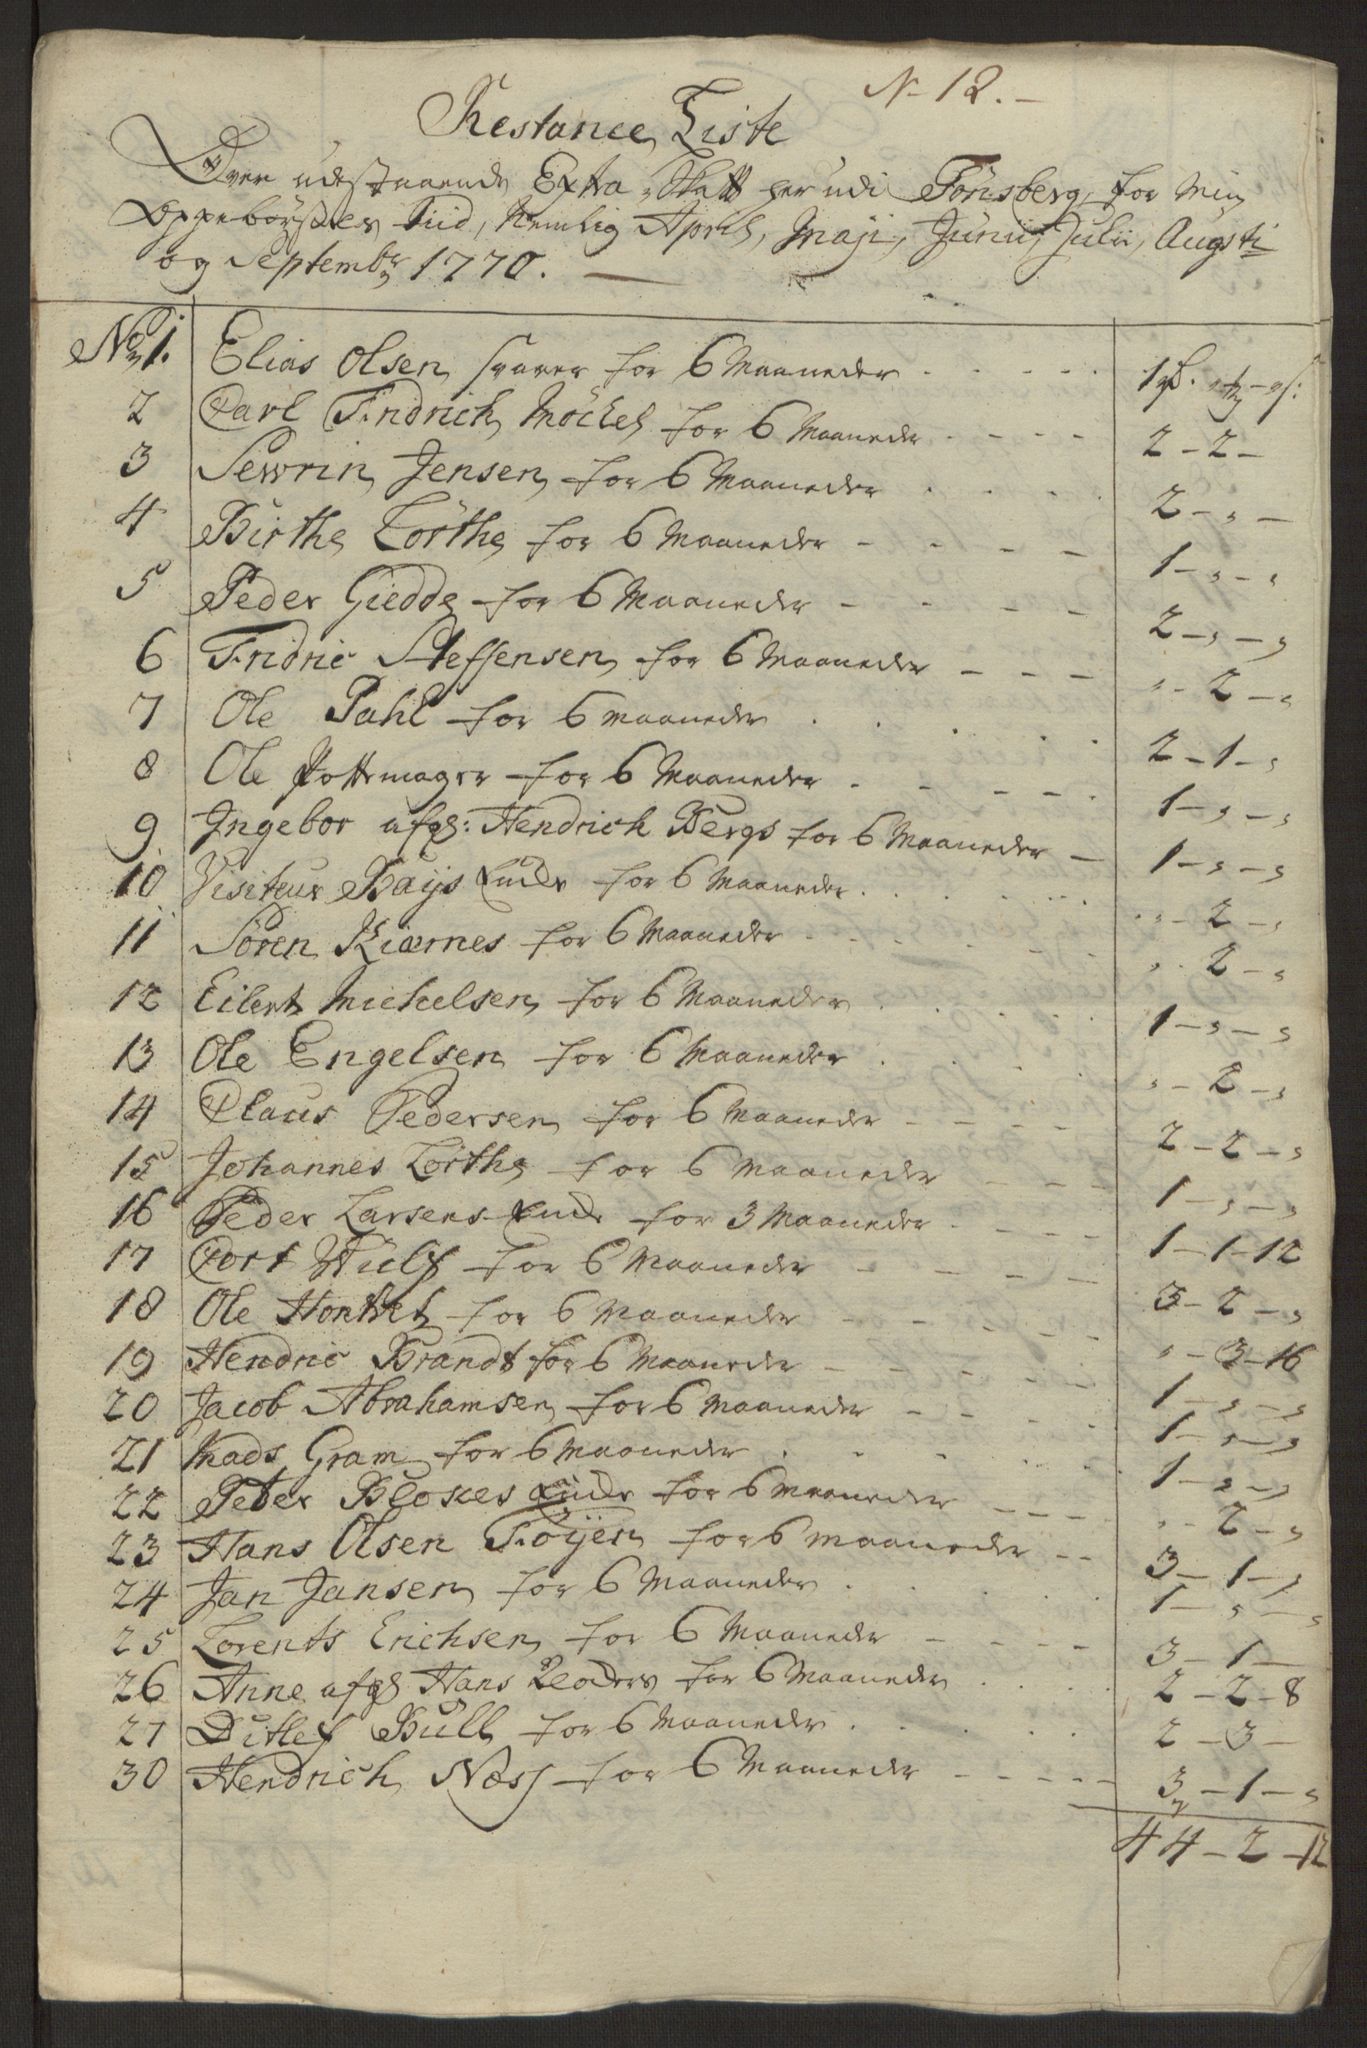 N 12.
Restance Liste
Over udestaaende Extra Skatt her udi Tönsberg, for Min
Oppebørsels Tiid, Nemlig April, Maji, Junii, Julii, Augsti
og Septembr 1770.
No 1. Elias Olsen svarer for 6 Maaneder 1
2 Carl Fridrich Möckel for 6 Maaneder 2 - 2 -
3 Sewrin Jensen for 6 Maaneder 2 - " -
4 Birthe Lörthe for 6 Maaneder 1 - " - "
5 Peder Giedde for 6 Maaneder 2 - " - "
6 Fridric Steffensen for 6 Maaneder " - 2 - "
7 Ole Pahl for 6 Maaneder 2 - 1 - "
8 Ole Pottemager for 6 Maaneder 1 - " - "
9 Ingebor afg: Hendrich Bergs for 6 Maaneder 1 - " - "
10 Visiteur Baijs Encke for 6 Maaneder " - 2 - "
11 Sören Kiærnes for 6 Maaneder " - 2 - "
12 Eilert Michelsen for 6 Maaneder 1 - " - "
13 Ole Engelsen for 6 Maaneder " - 2 - "
14 Claus Pedersen for 6 Maaneder 2 - 2 - "
15 Johannes Lörthe for 6 Maaneder 1 - " - "
16 Peder Larsens Encke for 3 Maaneder 1 - 1 - 12
17 Cort Wulf for 6 Maaneder 3 - 2 - "
18 Ole Hontvet for 6 Maaneder " - 3 - 16
19 Hendric Brandt for 6 Maaneder 1 - " - "
20 Jacob Abrahamsen for 6 Maaneder 1 - " - "
21 Mads Gram for 6 Maaneder 1 - " - "
22 Peter Blokes Encke for 6 Maaneder " - 2 - "
23 Hans Olsen Föijen for 6 Maaneder 3 - 1 - "
24 Jan Jansen for 6 Maaneder 1 - " - "
25 Lorents Erichsen for 6 Maaneder 3 - 1 -
26 Anne afg Hans for 6 Maaneder 2 - 2 - 8
27 Ditlef Bull for 6 Maaneder 2 - 3 -
30 Hendrich Næss for 6 Maaneder 3 - 1 - "
44 - 2 - 12